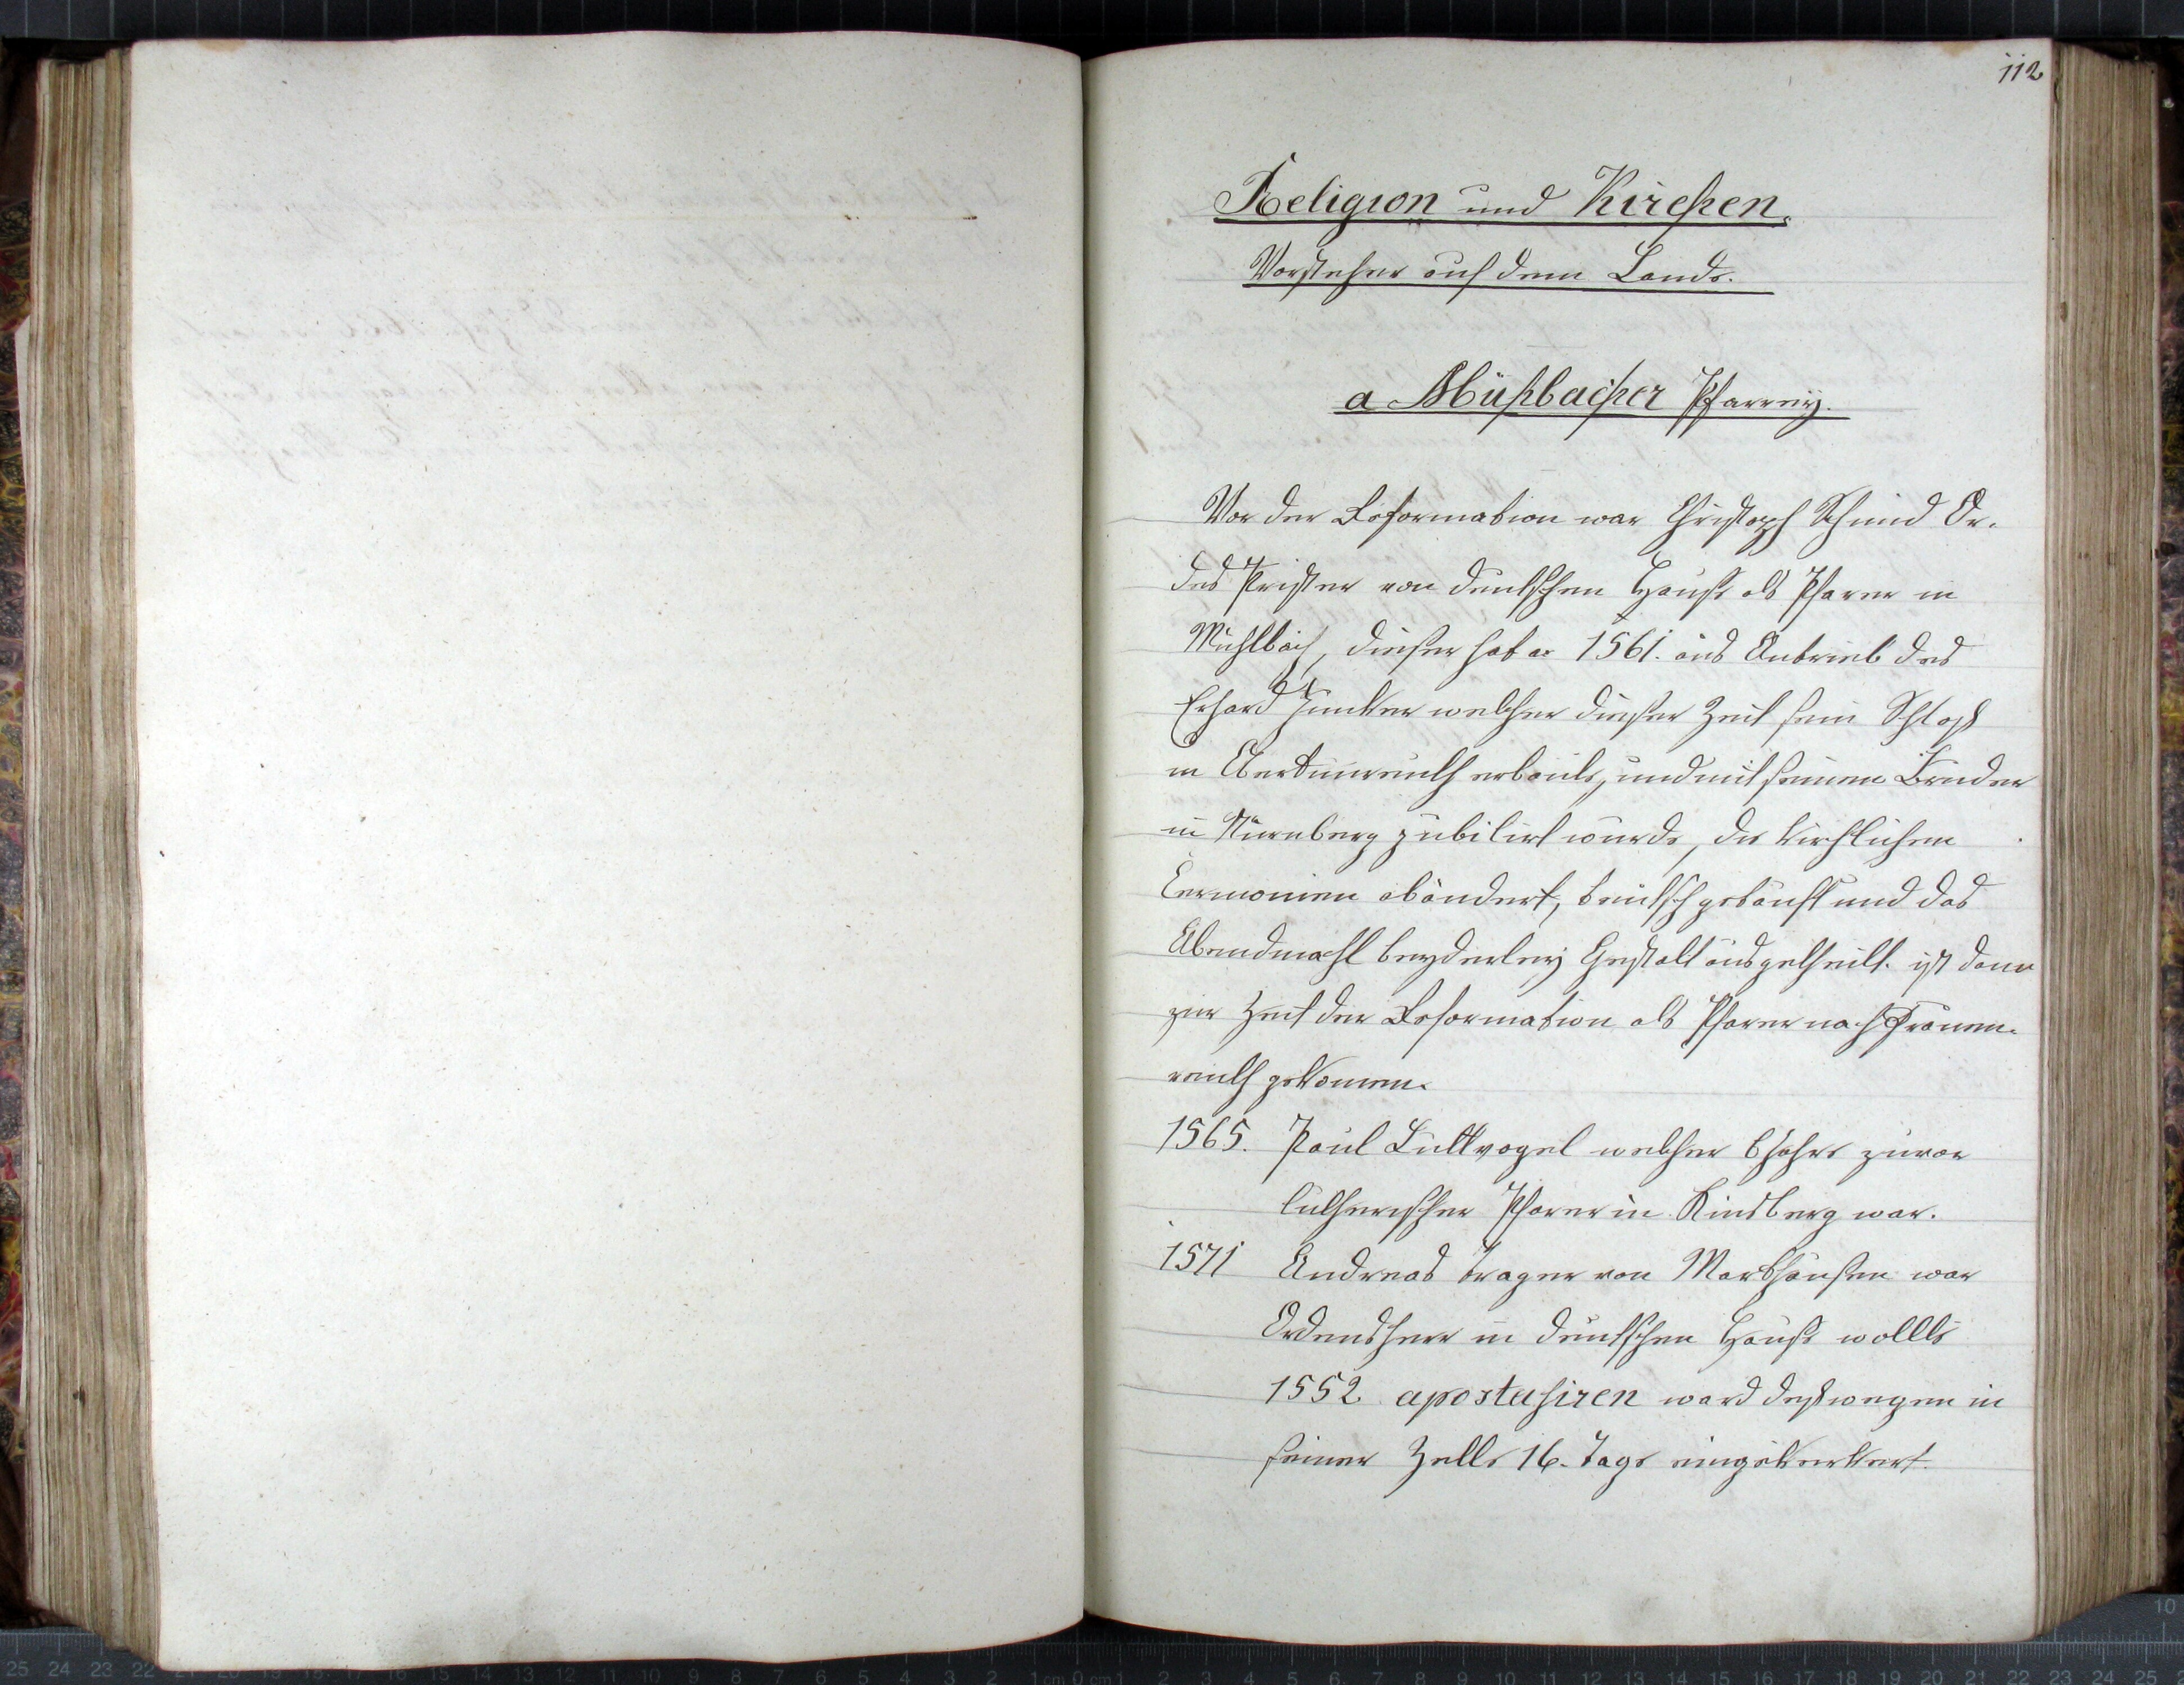 112
Religion und Kirchen.
Vorsteher auf dem Lande.
a Mühlbacher Pfarreÿ.
Vor der Reformation war Christoph Schmid Or-
des Prister von deutschen Hauße als Pfarer in
Mühlbach, dieser hat ao 1561. aus Antrieb des
Erhard Junker welcher dießer Zeit sein Schloß
in erbaute, und mit seinem Bruder
in Nürnberg jubilirt wurde, die kirchlichen
Cermonien abändert, teutsch getauft und das
Abendmahl beyderley Gestalt ausgetheilt. ist dann
zur Zeit der Reformation als Pfarer nach Frauen-
reuth gekomen.
1565. Paul welcher 6 Jahre zuvor
lutherischer Pfarer in Kinsberg war.
1571 Andreas Trager von Markhausen war
Ordensherr in deutschen Hauße wollte
1552 apostasiren ward deßwegen in
seiner Zelle 16. Tage eingekerkert.